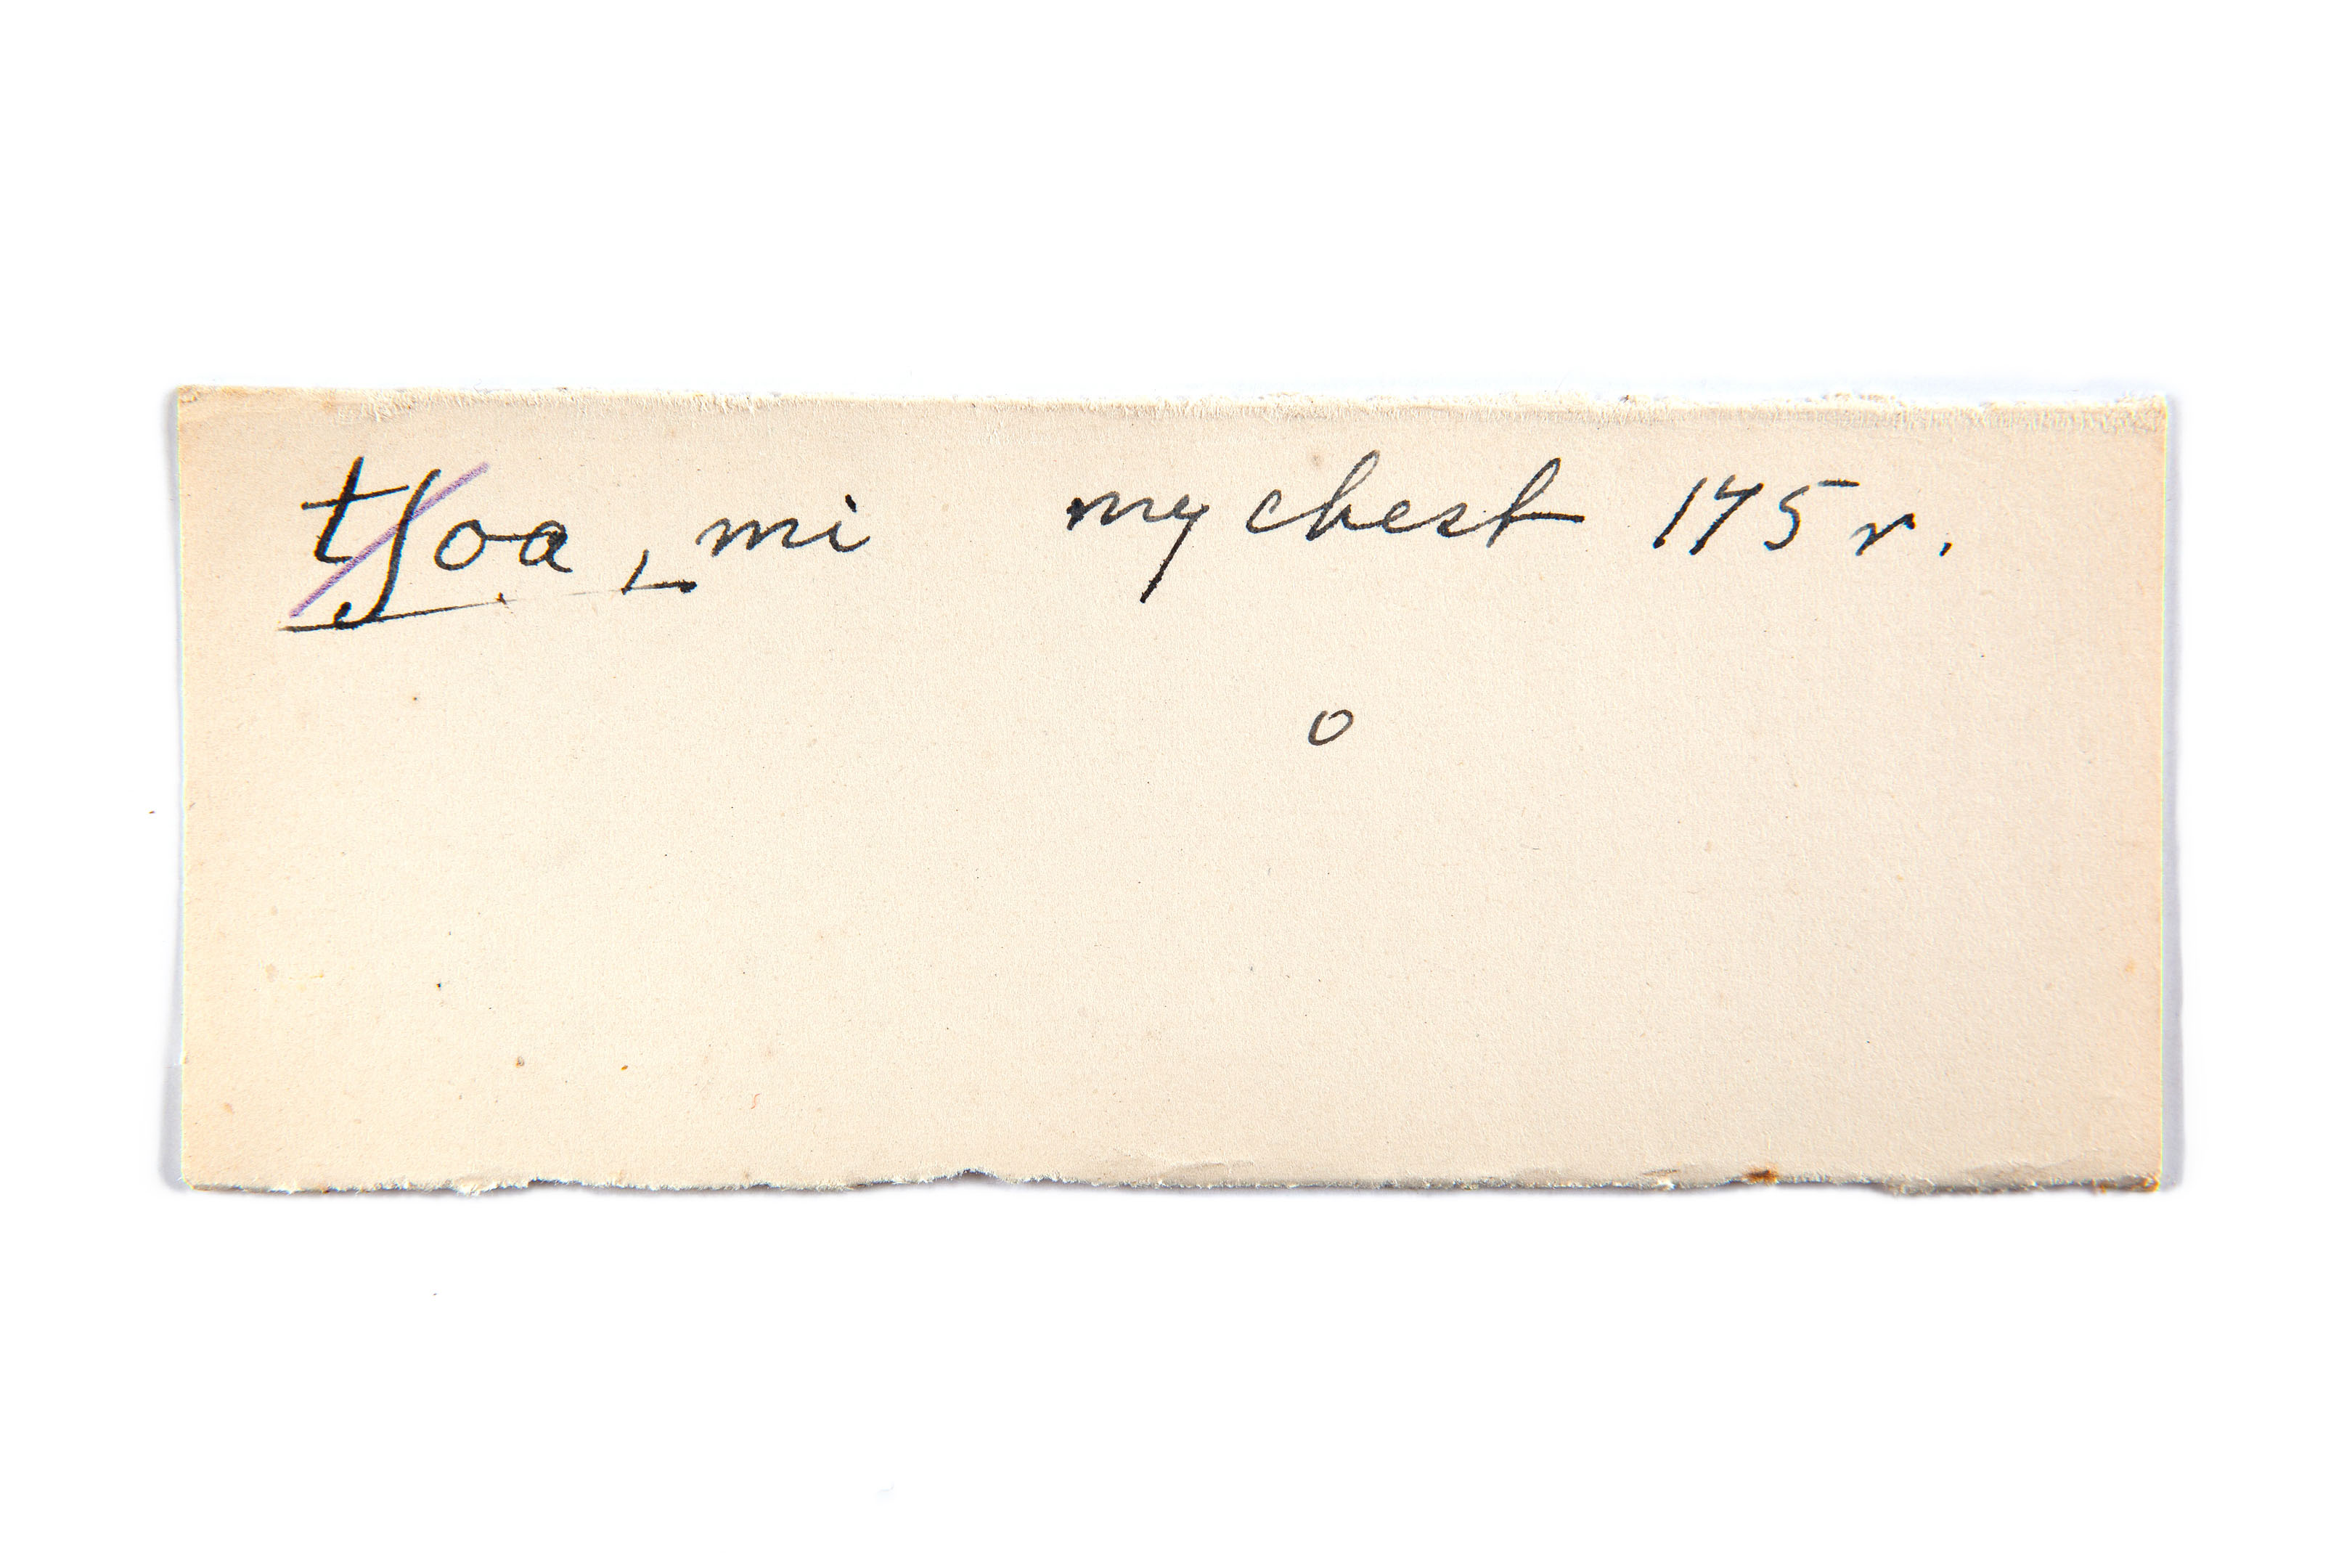 tʃoa ˻mi my chest 175 r.
o